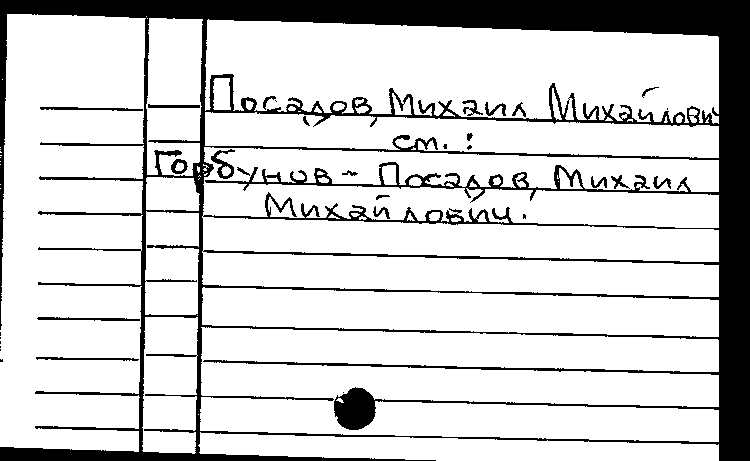 Посадов, Михаил Михайлович
см.:
Горбунов - Посадов, Михаил
Михайлович.